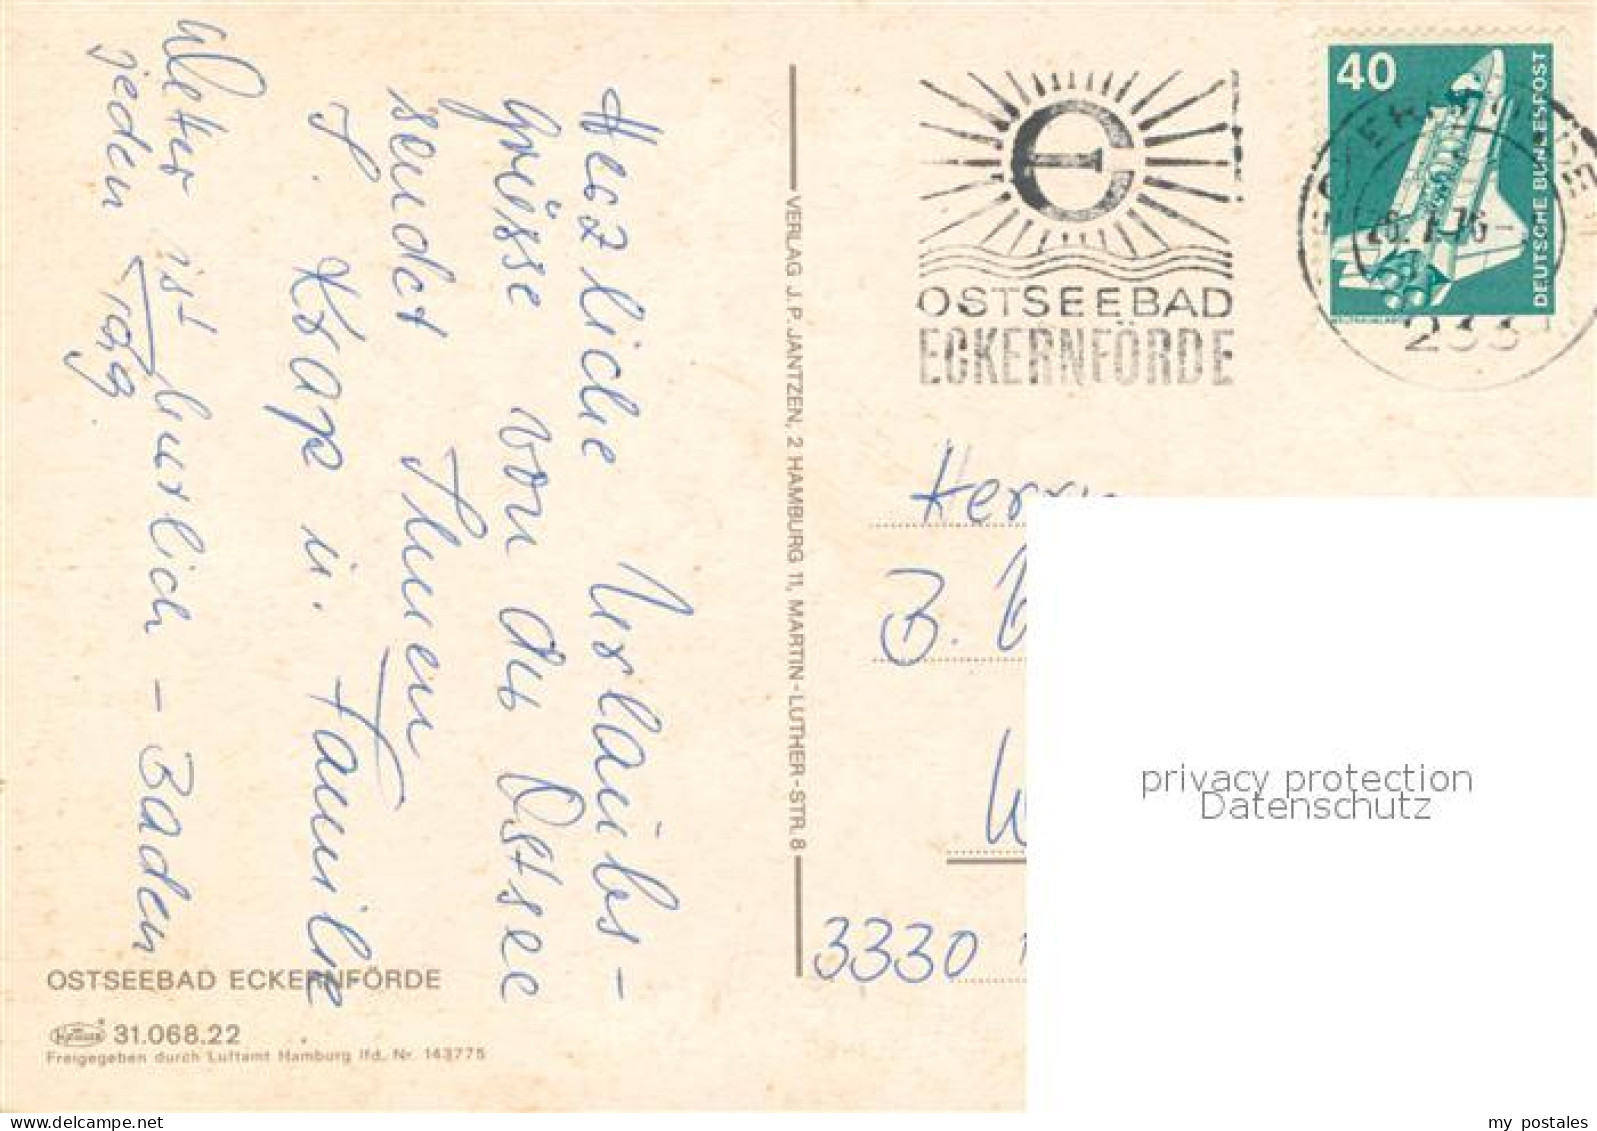 Herzliche Urlaubs-
Grüsse von der Ostsee
sendet Ihnen
u. Familie
Wetter ist - Baden
jeden Tag
OSTSEEBAD ECKERNFÖRDE
31.068.22
Freigegeben durch Luftamt Hamburg lfd. Nr. 143775
VERLAG J. P. JANTZEN, 2 HAMBURG 11, MARTIN-LUTHER-STR. 8
OSTSEEBAD
ECKERNFÖRDE
40
DEUTSCHE BUNDESPOST
WELTRAUMLABOR
233
Herrn
3330
privacy protection
Datenschutz
my postales